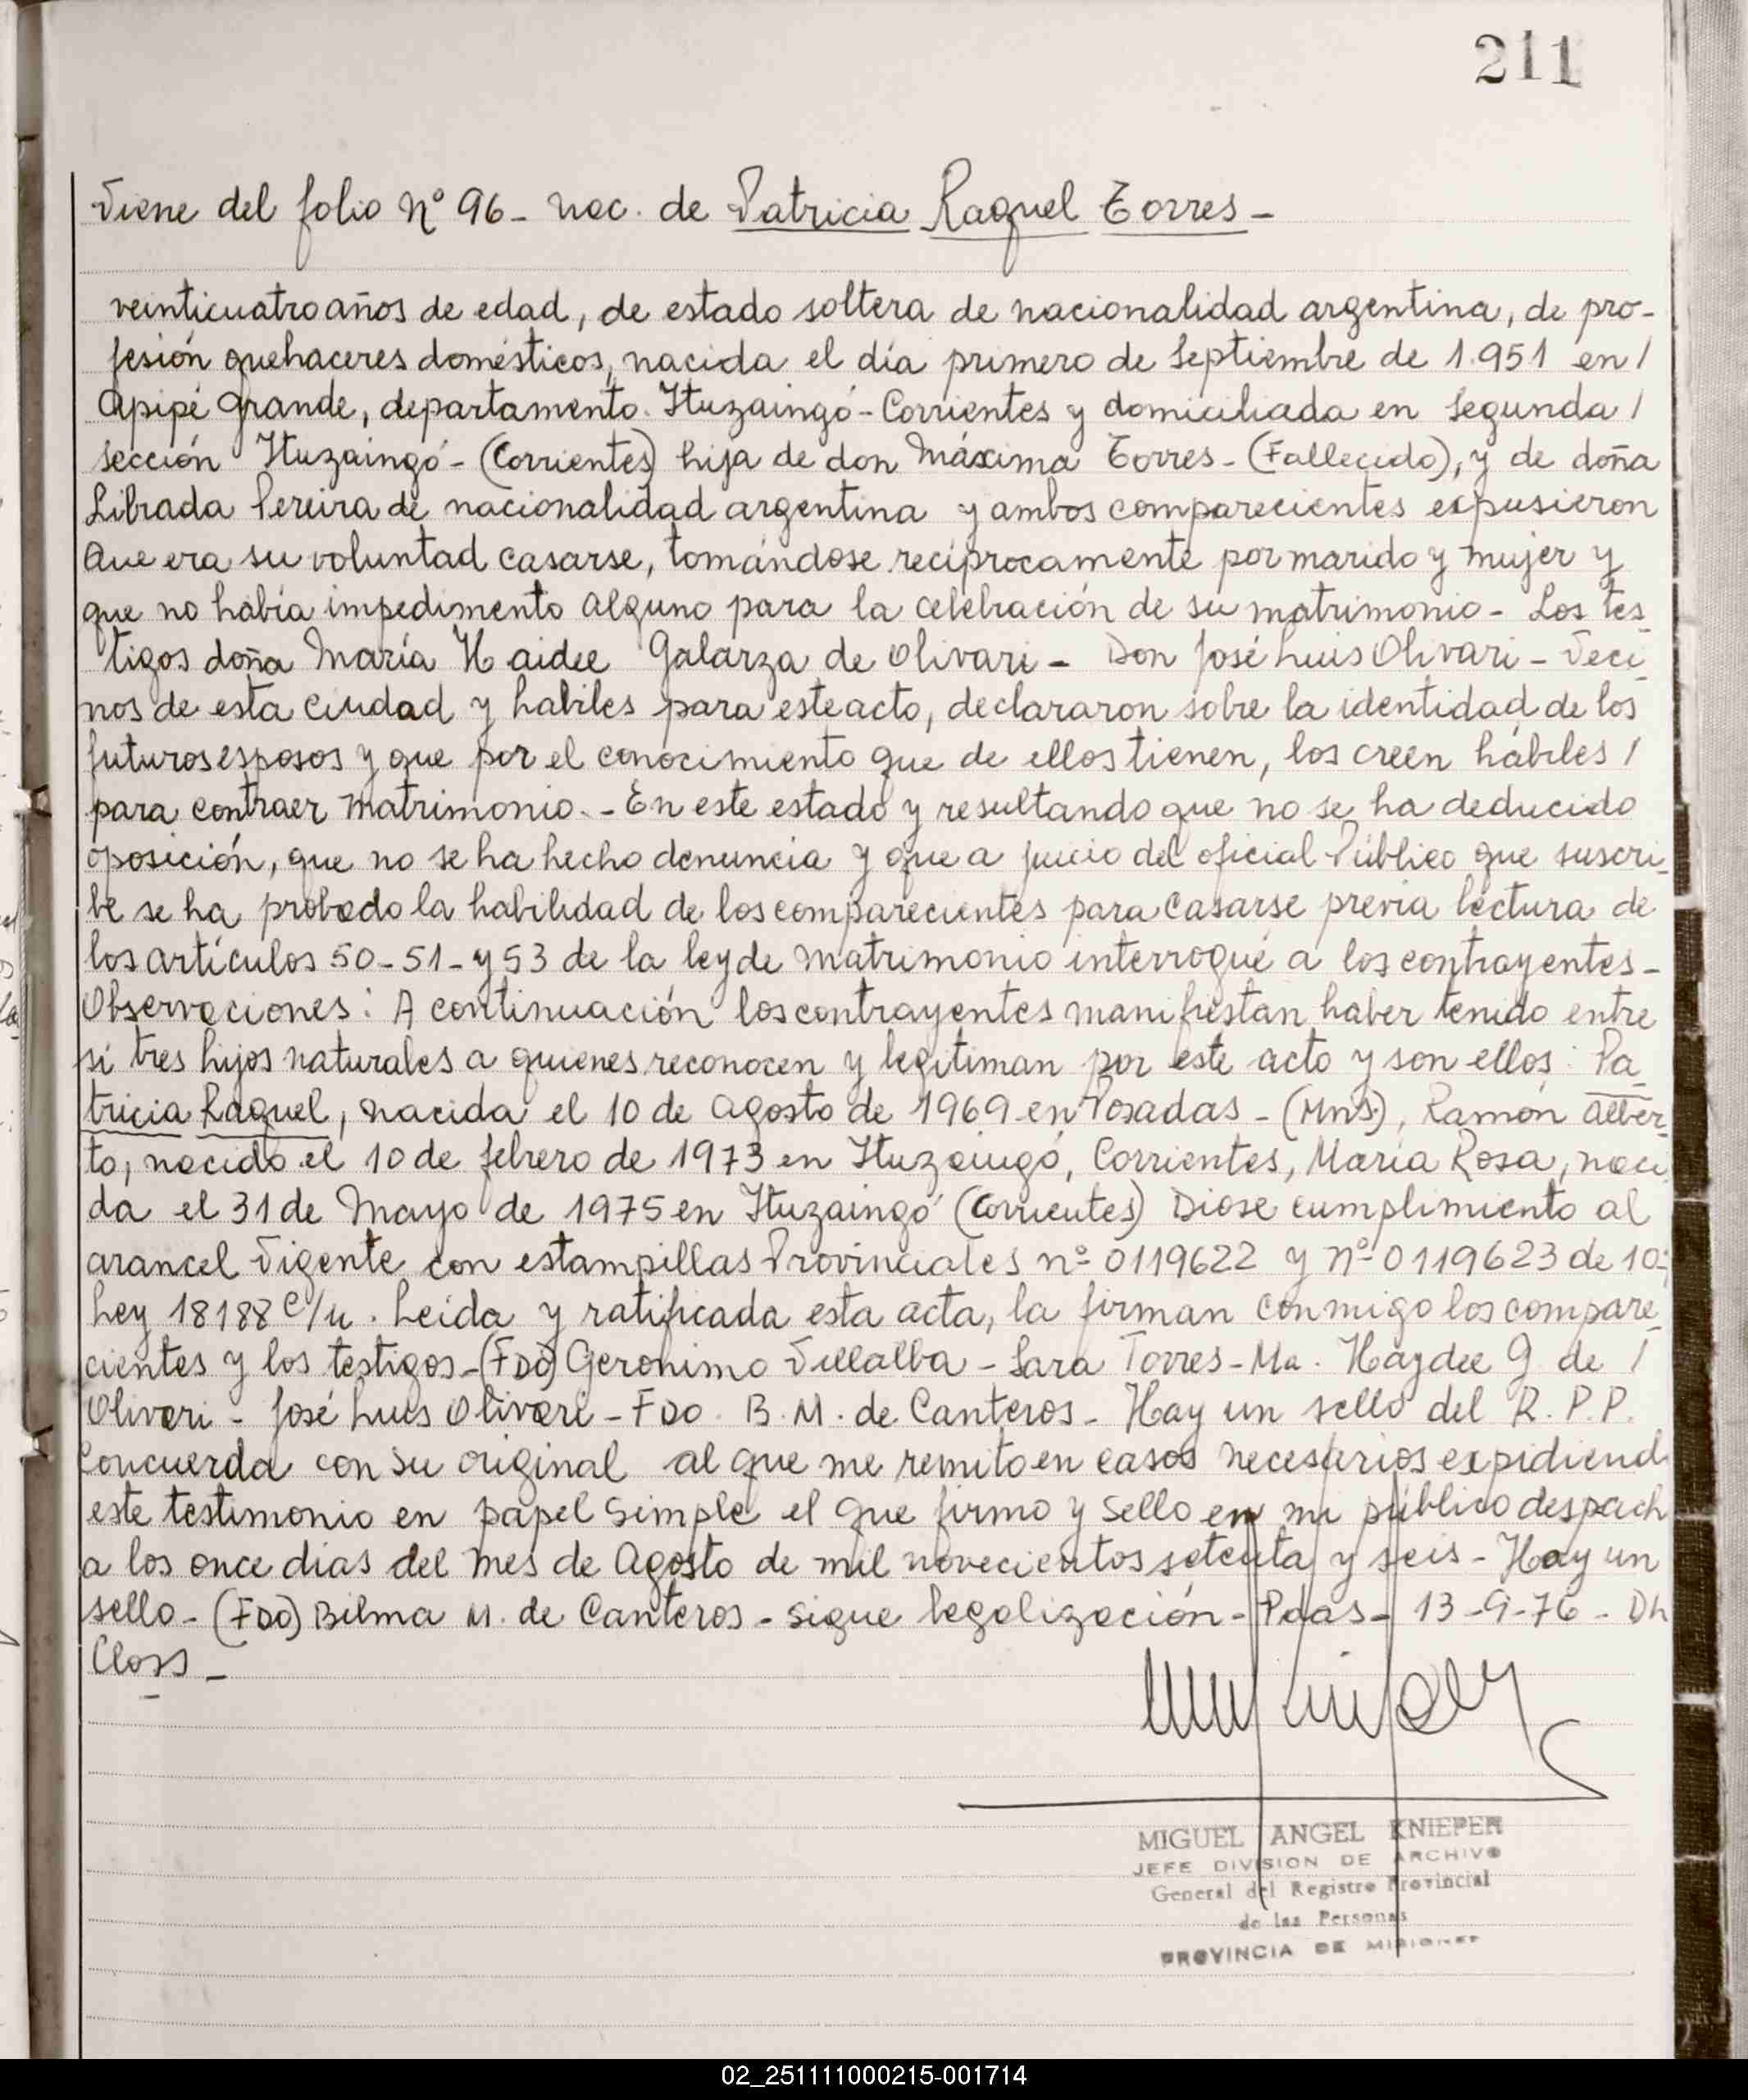 211
Viene del folio Nº 96 - nac. de Patricia Raquel Torres -
veinticuatro años de edad, de estado soltera de nacionalidad argentina, de pro-
fesión quehaceres domésticos, nacida el día primero de Septiembre de 1.951 en /
Apipé Grande, departamento Ituzaingó - Corrientes y domiciliada en Segunda /
sección Ituzaingó - (Corrientes) hija de don Máxima Torres - (Fallecido), y de doña
Librada Pereira de nacionalidad argentina y ambos comparecientes expusieron
Que era su voluntad casarse, tomándose recíprocamente por marido y mujer y
que no había impedimento alguno para la celebración de su matrimonio - Los tes-
tigos doña María Haidee Galarza de Olivari - Don José Luis Olivari - Veci-
nos de esta ciudad y habiles para este acto, declararon sobre la identidad de los
futuros esposos y que por el conocimiento que de ellos tienen, los creen hábiles /
para contraer matrimonio. - En este estado y resultando que no se ha deducido
oposición, que no se ha hecho denuncia y que a juicio del oficial Público que suscri-
be se ha probado la habilidad de los comparecientes para casarse previa lectura de
los artículos 50 - 51 - y 53 de la ley de matrimonio interrogué a los contrayentes -
Observaciones: A continuación los contrayentes manifiestan haber tenido entre
sí tres hijos naturales a quienes reconocen y legitiman por este acto y son ellos: Pa-
tricia Raquel, nacida el 10 de Agosto de 1969 en Posadas - (Mns), Ramón Alber-
to, nacido el 10 de febrero de 1973 en Ituzaingó, Corrientes, María Rosa, naci-
da el 31 de Mayo de 1975 en Ituzaingó (Corrientes) Diose cumplimiento al
arancel vigente con estampillas Provinciales nº 0119622 y nº 0119623 de 10-;
Ley 18188 c/u. Leida y ratificada esta acta, la firman conmigo los compare-
cientes y los testigos - (FDO) Geronimo Villalba - Sara Torres - Ma. Haydee G. de /
Olivari - José Luis Olivari - FDO. B. M. de Canteros - Hay un sello del R. P. P.
Concuerda con su original al que me remito en casos necesarios expidiend
este testimonio en papel simple el que firmo y sello en mi público despach
a los once dias del mes de Agosto de mil novecientos setenta y seis - Hay un
sello - (FDO) Bilma M. de Canteros - Sigue legalización - Pdas - 13-9-76 - Dh
Closs -
MIGUEL ANGEL KNIEPER
JEFE DIVISION DE ARCHIVO
General del Registro Provincial
de las Personas
PROVINCIA DE MISIONES
02_251111000215-001714